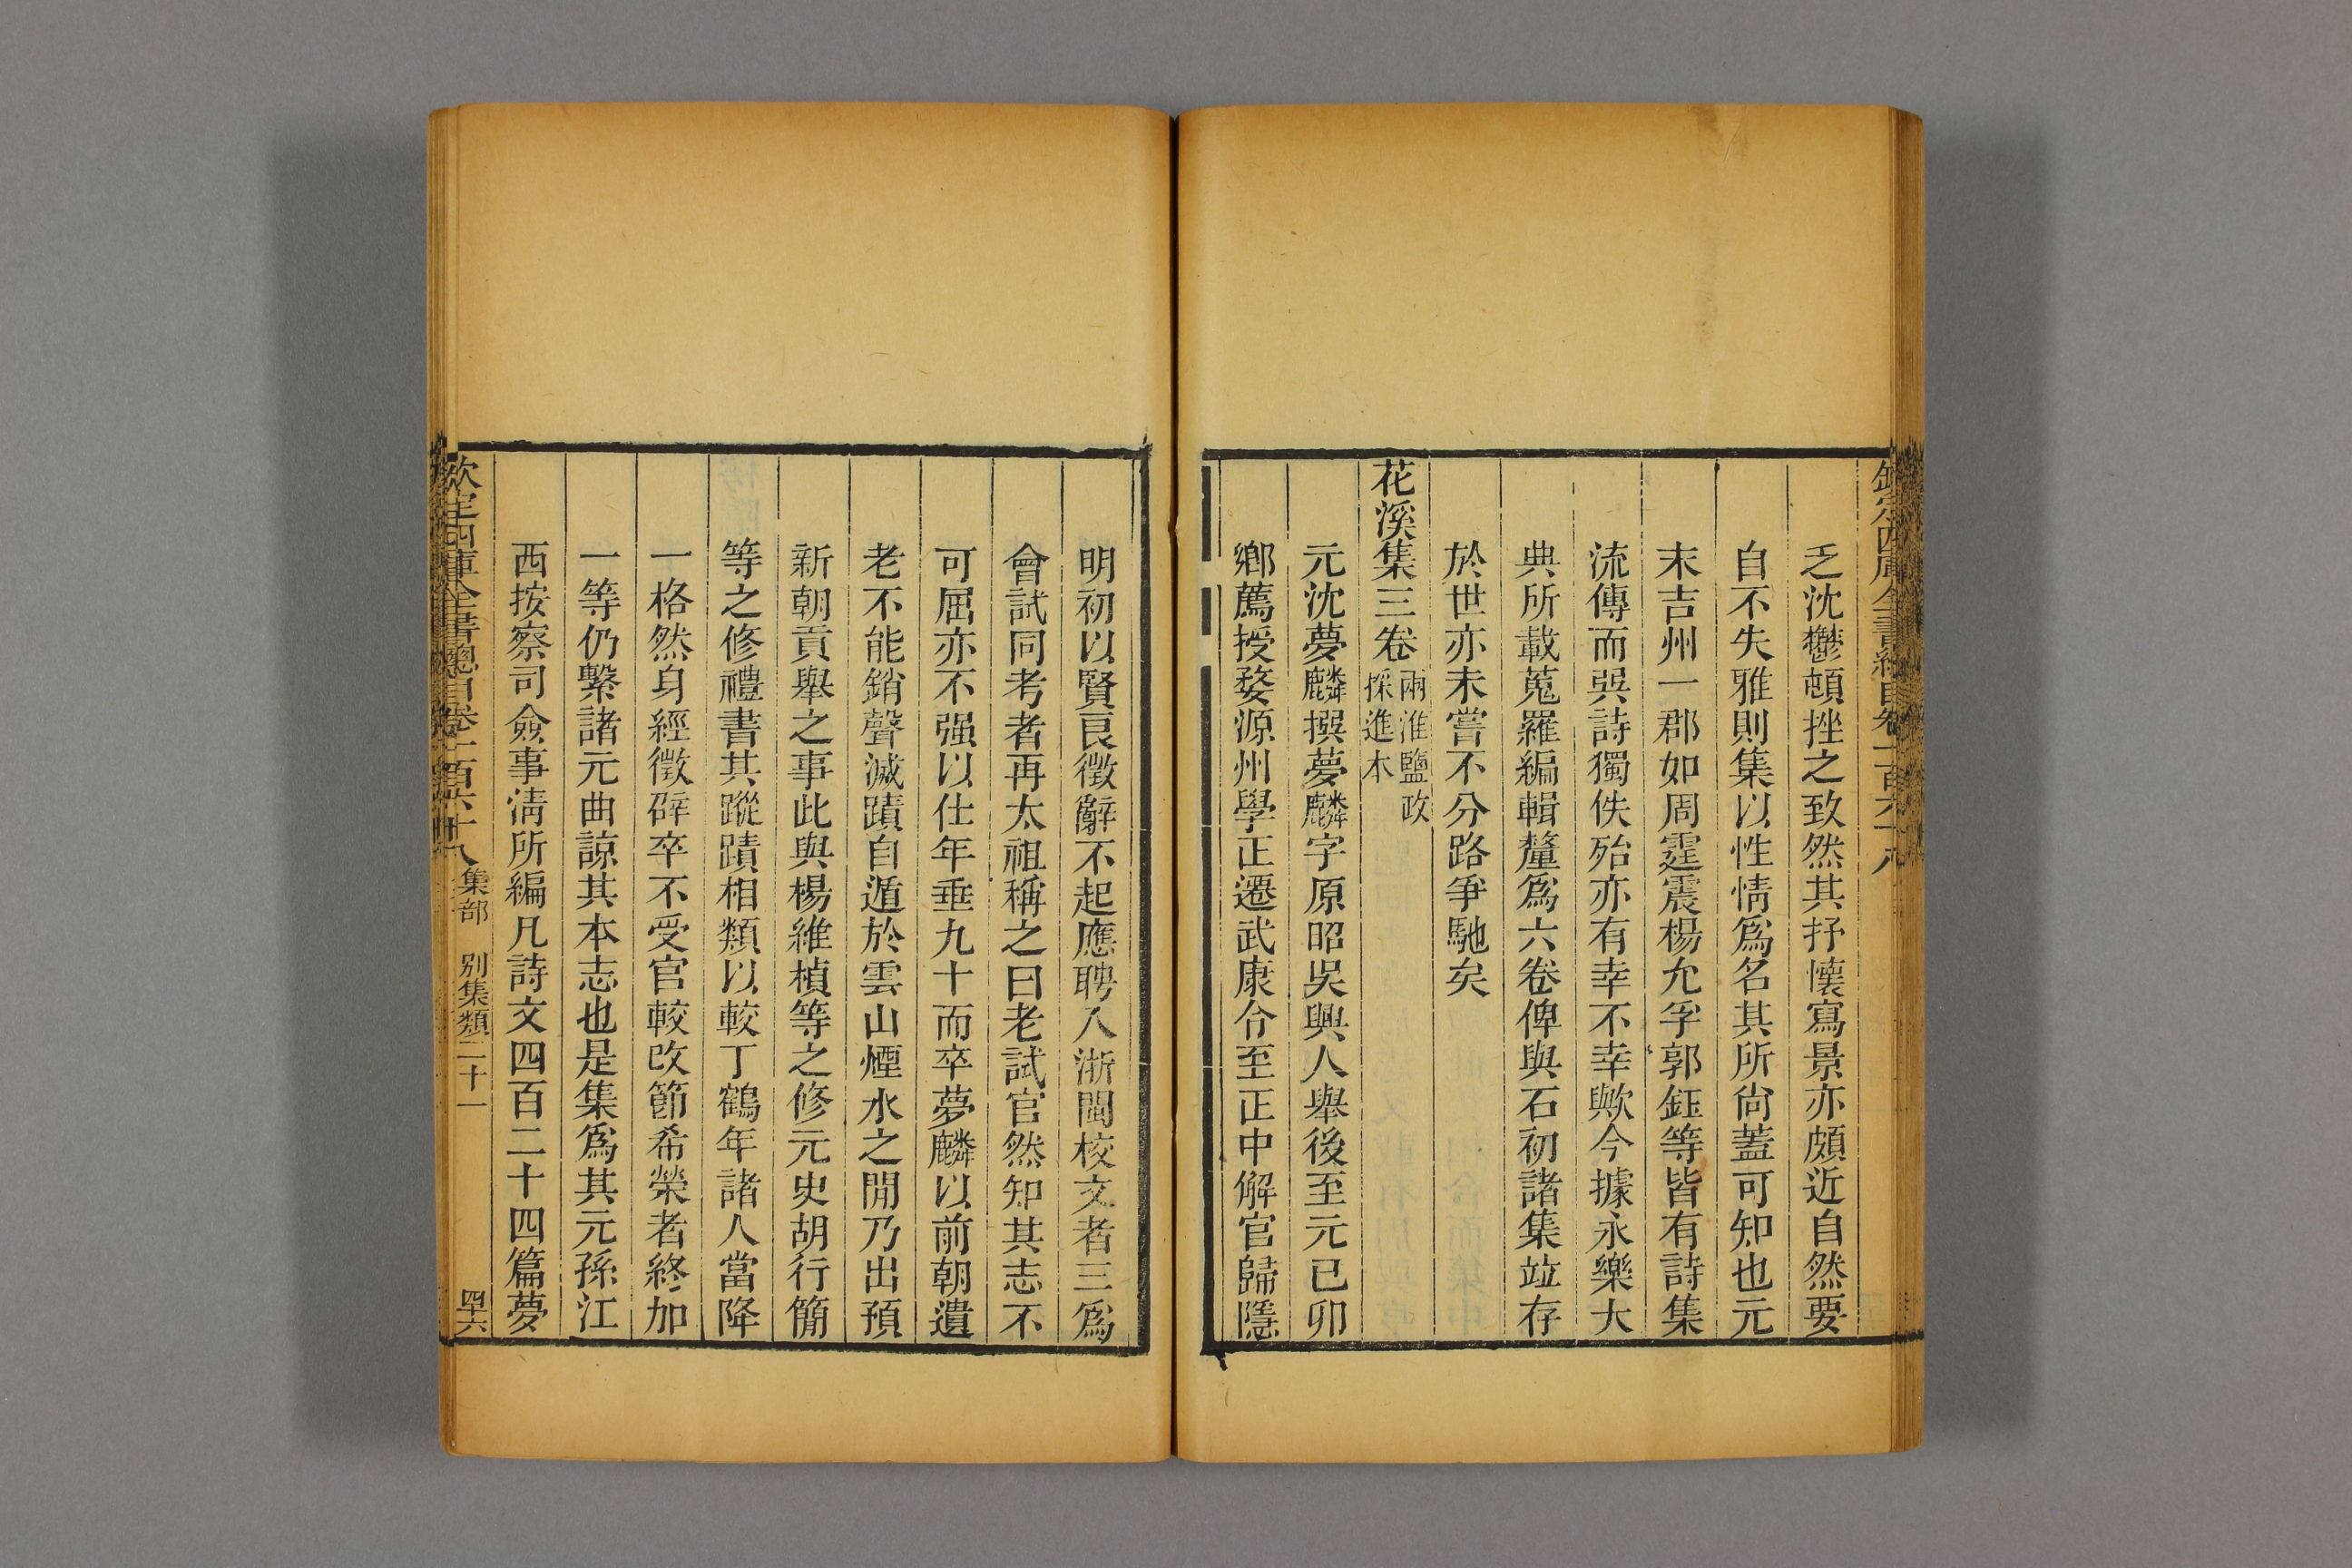 欽定四庫全書總目卷一百六十八
乏沈鬱頓挫之致然其抒懷寫景亦頗近自然要
自不失雅則集以性情爲名其所尙蓋可知也元
末吉州一郡如周霆震楊允孚郭鈺等皆有詩集
流傳而吳詩獨佚殆亦有幸不幸歟今據永樂大
典所載蒐羅編輯釐爲六卷俾與石初諸集竝存
於世亦未嘗不分路爭馳矣
花溪集三卷兩淮鹽政採進本
元沈夢麟撰夢麟字原昭吳興人舉後至元己卯
鄉薦授婺源州學正遷武康令至正中解官歸隱
明初以賢良徵辭不起應聘入浙閩校文者三爲
會試同考者再太祖稱之曰老試官然知其志不
可屈亦不强以仕年垂九十而卒夢麟以前朝遺
老不能銷聲滅蹟自遁於雲山煙水之閒乃出預
新朝貢舉之事此與楊維楨等之修元史胡行簡
等之修禮書其蹤蹟相類以較丁鶴年諸人當降
一格然身經徵辟卒不受官較改節希榮者終加
一等仍繫諸元曲諒其本志也是集爲其元孫江
西按察司僉事淸所編凡詩文四百二十四篇夢
欽定四庫全書總目卷一百六十八 集部 別集類二十一 四十六